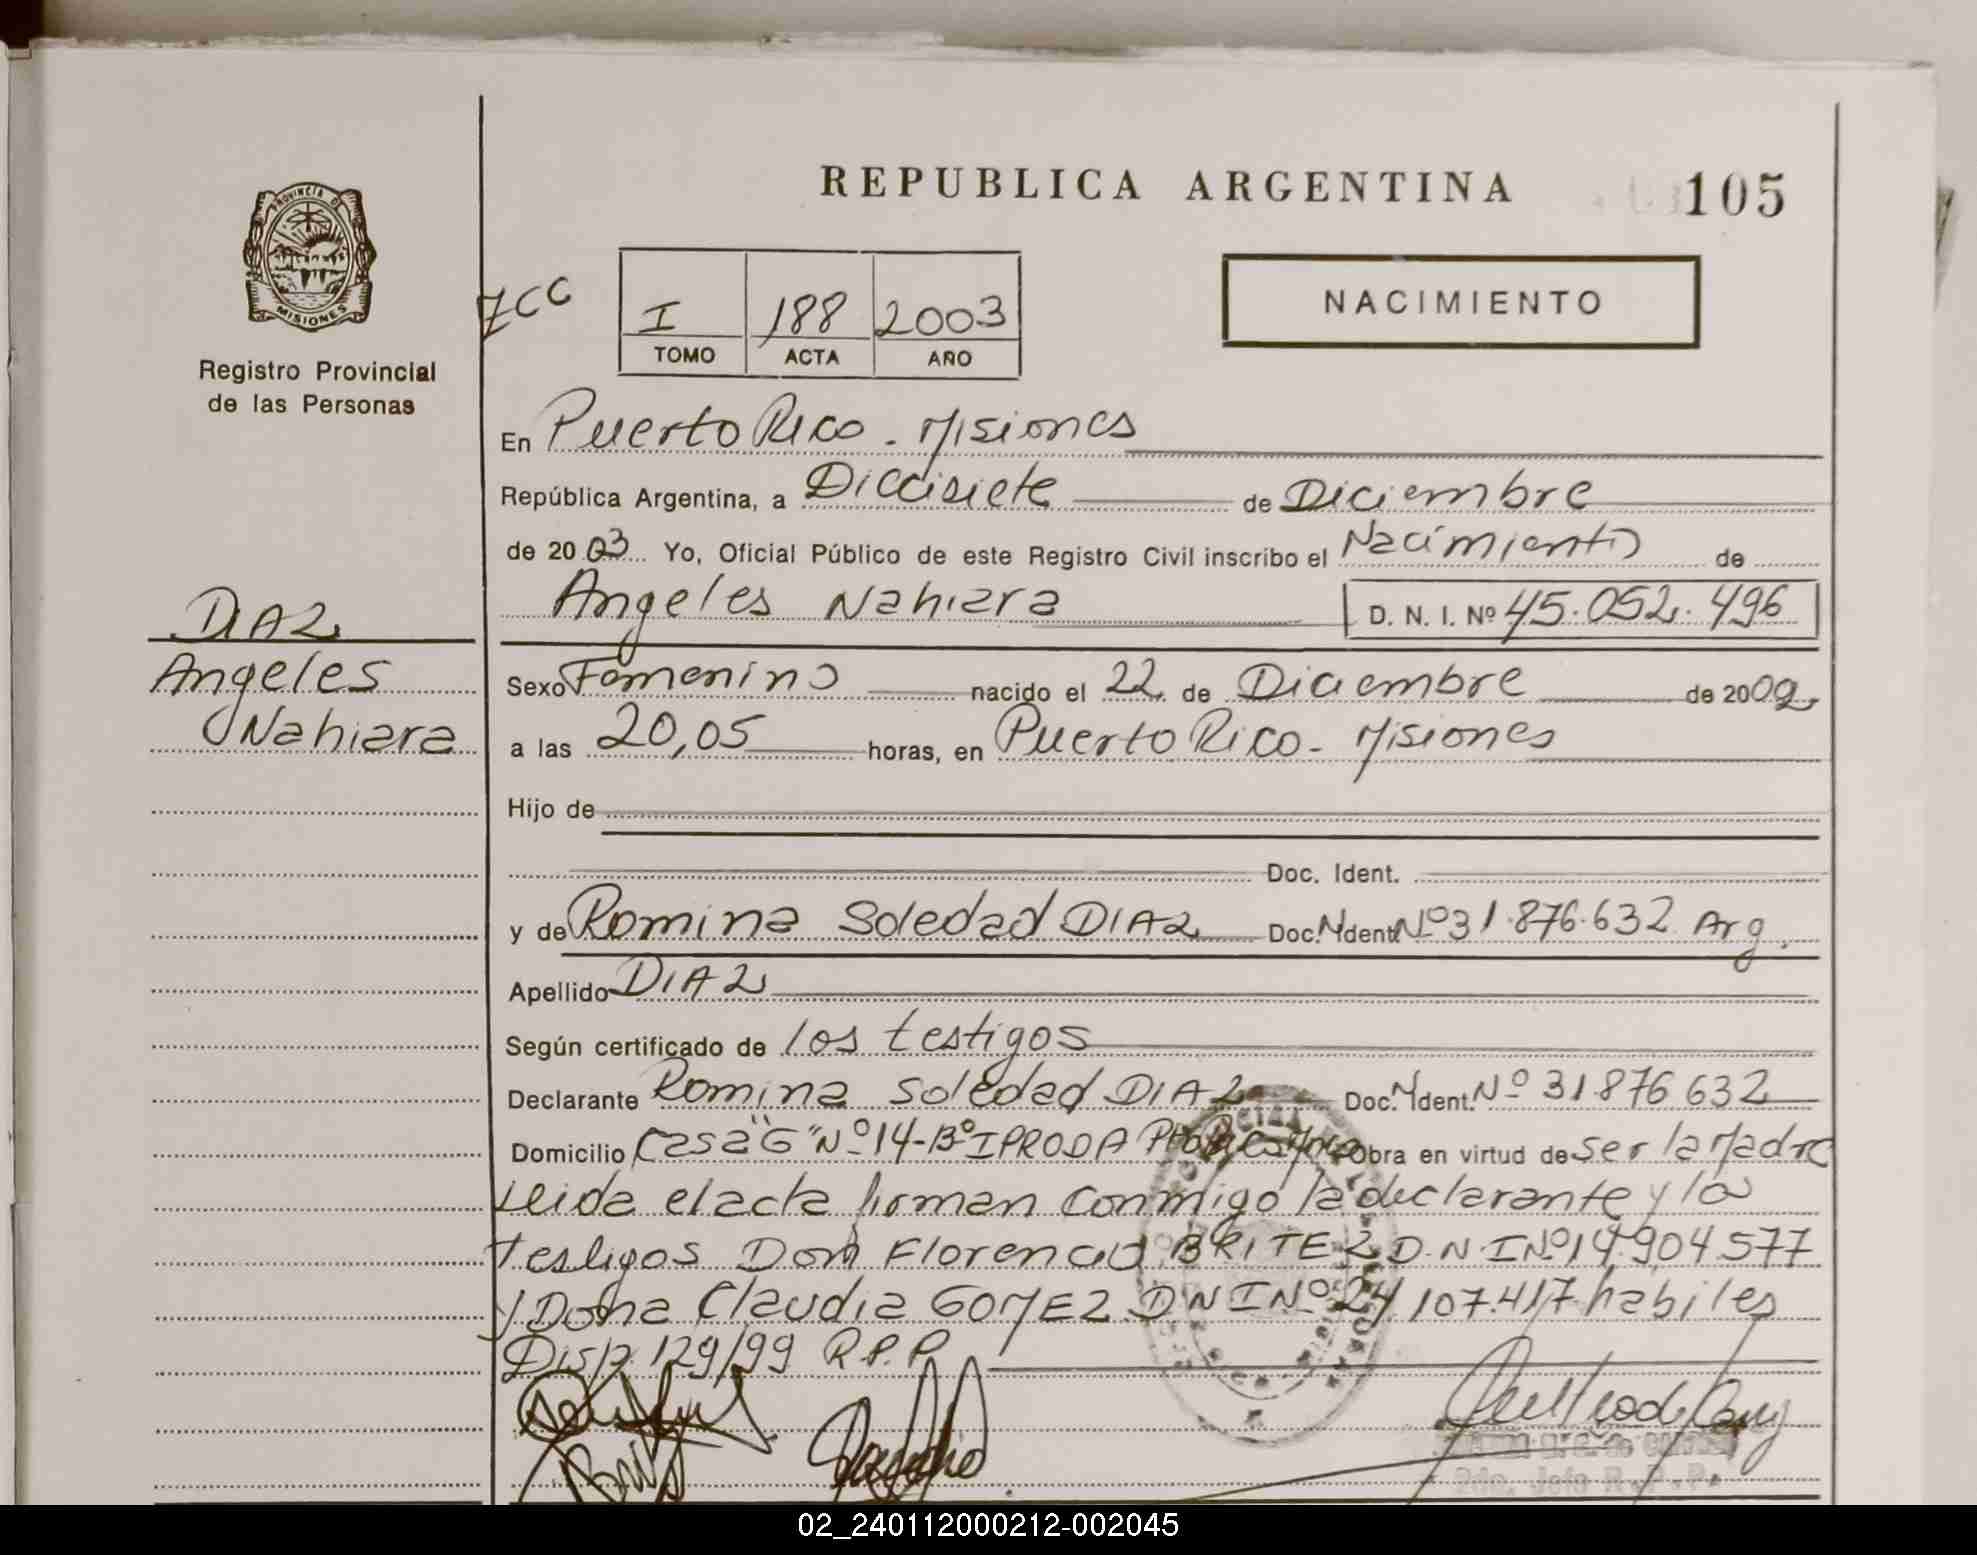 REPUBLICA ARGENTINA
105
PROVINCIA DE
MISIONES
Registro Provincial
de las Personas
ZCC
I 188 2003
TOMO ACTA AÑO
NACIMIENTO
En Puerto Rico - Misiones
República Argentina, a Diecisiete de Diciembre
de 2003 Yo, Oficial Público de este Registro Civil inscribo el Nacimiento de
Angeles Nahiara D. N. I. Nº 45.052.496
DIAZ
Angeles
Nahiara
Sexo Femenino nacido el 22 de Diciembre de 2002
a las 20,05 horas, en Puerto Rico - Misiones
Hijo de
Doc. Ident.
y de Romina Soledad DIAZ Doc. Ident. Nº 31.876.632 Arg.
Apellido DIAZ
Según certificado de los testigos
Declarante Romina Soledad DIAZ Doc. Ident. Nº 31.876.632
Domicilio Casa "G" Nº 14-Bº IPRODA Pto Rico Mnes Obra en virtud de ser la Madre
Leida el acta firman conmigo la declarante y los
testigos Don Florencio BRITEZ D.N.I Nº 14.904.577
y Doña Claudia GOMEZ DNI Nº 24.107.417 habiles
Disp. 129/99 R.P.P
02_240112000212-002045